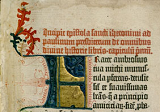 Incipit epistola sancti iheronimi ad
paulinum presbiterum de omnibus
diuine historie libris capitulū pmū
Frater ambrosius
tua michi munus
cula pferens detulit
sil et suauissimas
lrās q a principio